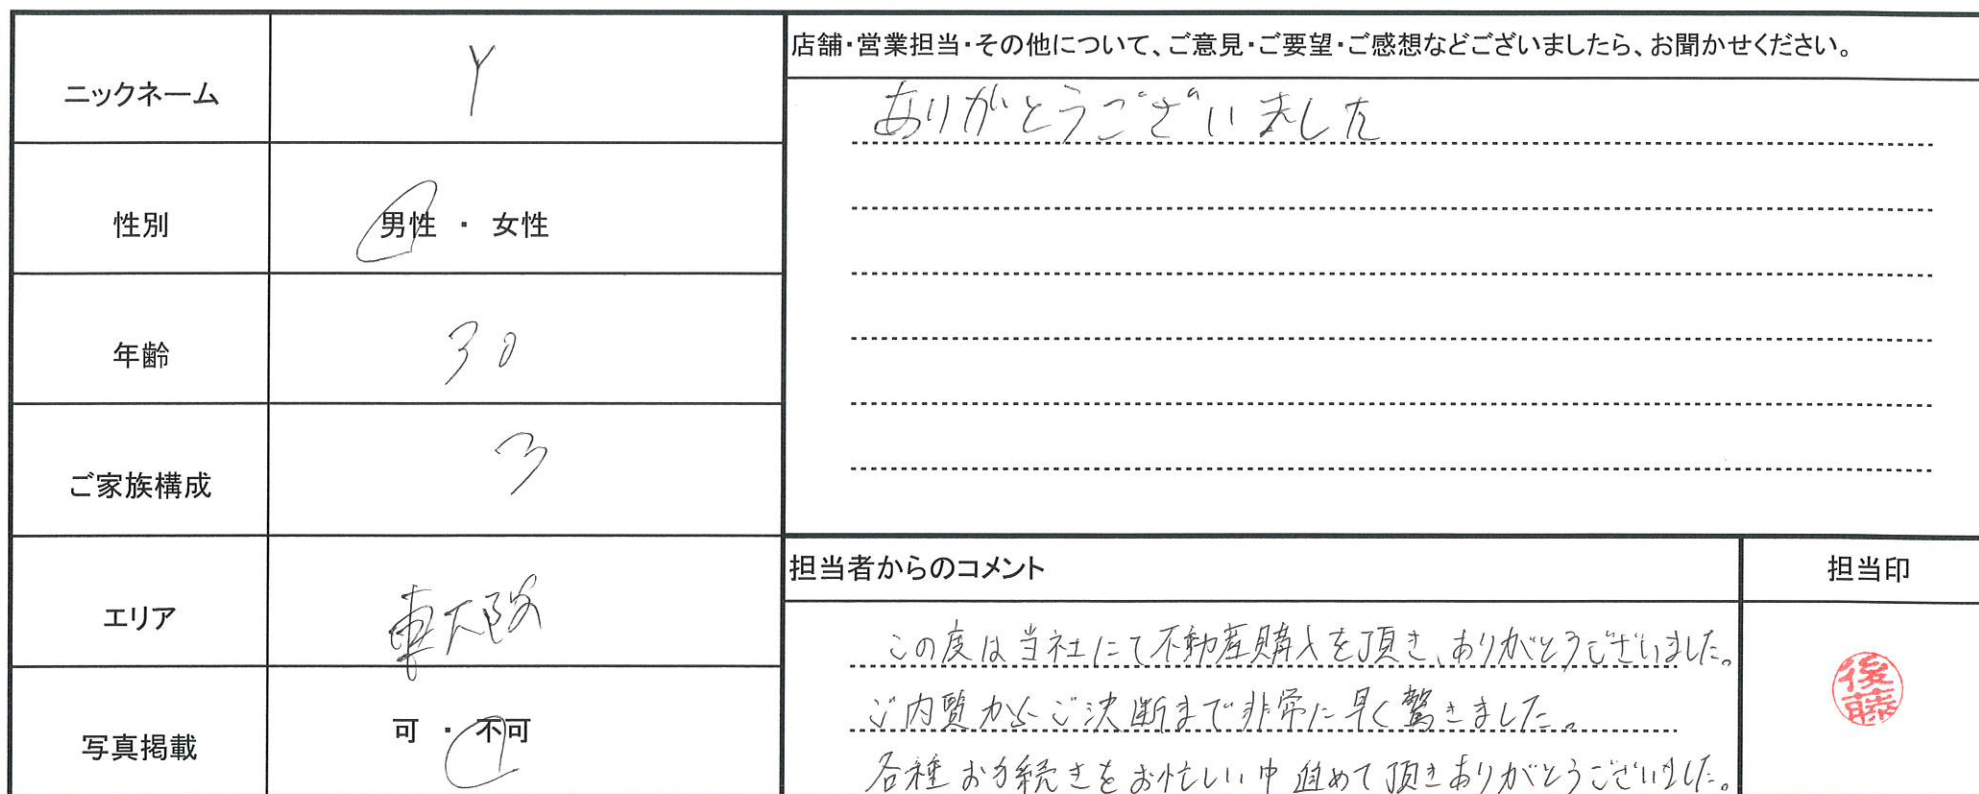 ニックネーム
Y
性別
男性 ・ 女性
年齢
30
ご家族構成
3
エリア
東大阪
写真掲載
可 ・ 不可
店舗・営業担当・その他について、ご意見・ご要望・ご感想などございましたら、お聞かせください。
ありがとうございました
担当者からのコメント
この度は当社にて不動産購入を頂き、ありがとうございました。
ご内覧からご決断まで非常に早く驚きました。
各種お手続きをお忙しい中進めて頂きありがとうございました。
担当印
後藤